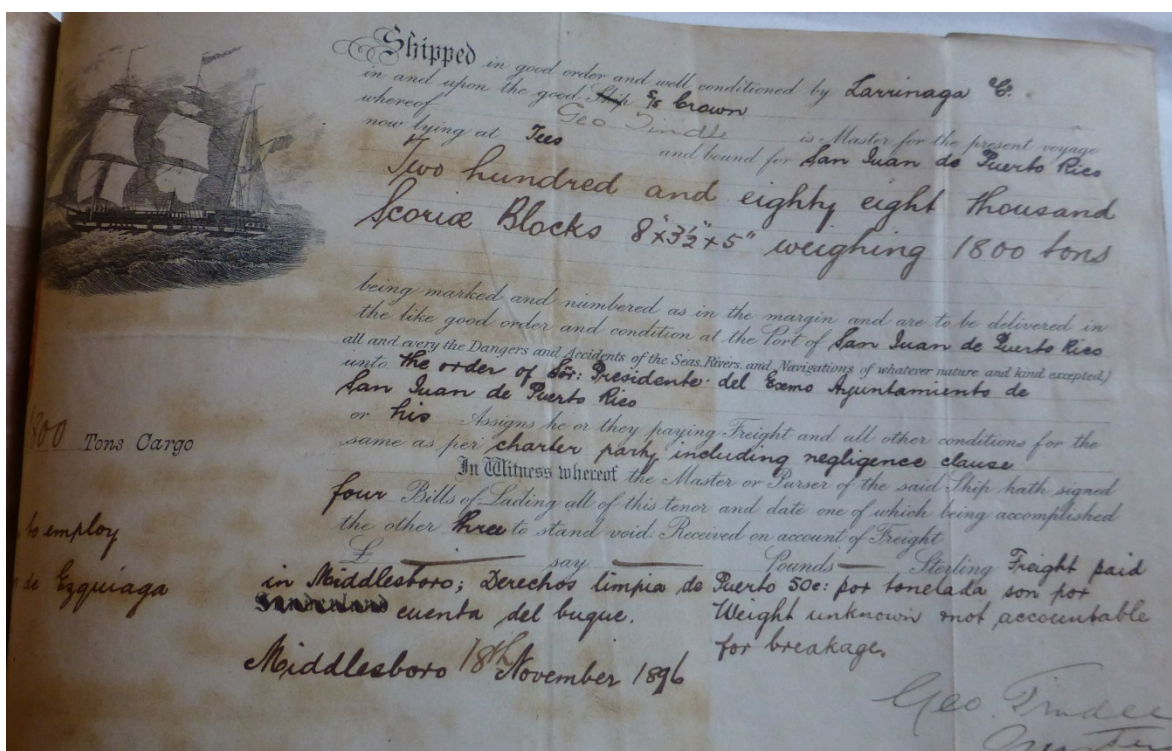 Shipped in good order and well conditioned by Larrinaga & Co.
in and upon the good Ship S/S Crown
whereof Geo Tindle is Master for the present voyage
now lying at Tees and bound for San Juan de Puerto Rico
Two hundred and eighty eight thousand
Scoriæ Blocks 8"x3½"x5" weighing 1800 tons
being marked and numbered as in the margin and are to be delivered in
the like good order and condition at the Port of San Juan de Puerto Rico
all and every the Dangers and Accidents of the Seas, Rivers, and Navigations of whatever nature and kind excepted)
unto the order of Sőr: Presidente del Exmo Ayuntamiento de
San Juan de Puerto Rico
or his Assigns he or they paying Freight and all other conditions for the
same as per charter party including negligence clause
In Witness whereof the Master or Purser of the said Ship hath signed
four Bills of Lading all of this tenor and date one of which being accomplished
the other three to stand void. Received on account of Freight
£ say Pounds Sterling Freight paid
in Middlesboro; Derechos limpia de Puerto 50c: por tonelada son por
cuenta del buque. Weight unknown & not accountable
for breakage.
Middlesboro 18th November 1896
Geo. Tindle
1800 Tons Cargo
to employ
de Ezquiaga